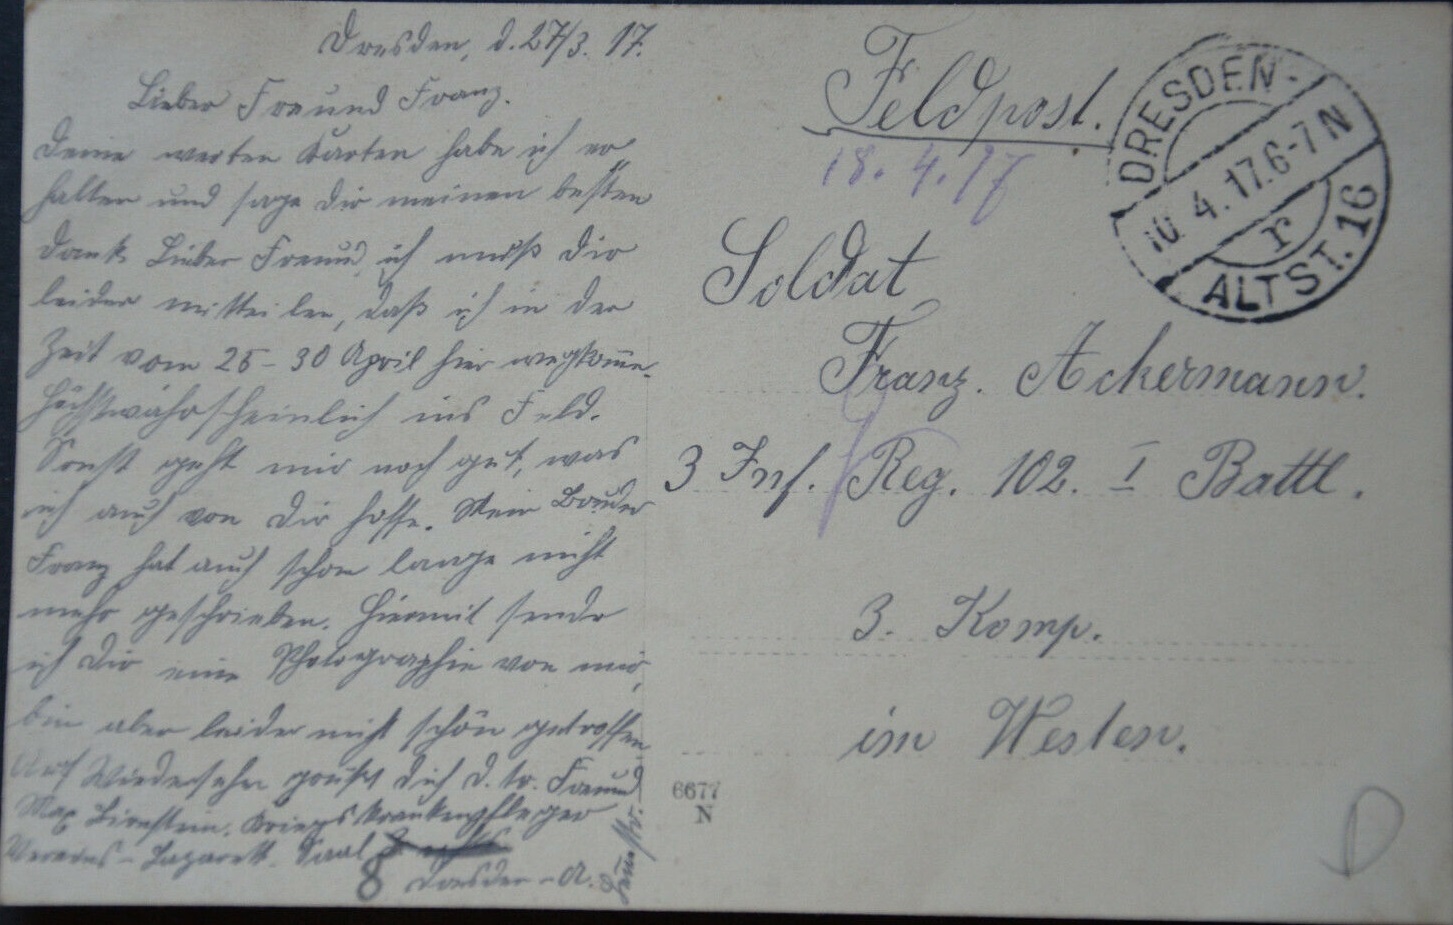 Dresden, d. 27/3. 17.
Lieber Freund Franz.
Deine werten Karten habe ich er
halten und sage Dir meinen besten
Dank. Lieber Freund, ich muß Dir
leider mitteilen, daß ich in der
Zeit vom 25 - 30 April hier wegkomme.
Höchstwahrscheinlich ins Feld.
Sonst geht mir noch gut, was
ich auch von Dir hoffe. Mein Bruder
Franz hat auch schon lange nicht
mehr geschrieben. Hiermit sende
ich Dir eine Photographie von mir,
bin aber leider nicht schön getroffen
Auf Wiedersehn grüßt Dich d. tr. Freund
Max Kriegskrankenpfleger
Vereins-Lazarett. Saal
8 Dresden-A.
Feldpost.
18. 4. 17
Soldat
Franz. Ackermann.
3 Inf. Reg. 102. I Battl.
3. Komp.
im Westen.
DRESDEN-
10 4. 17. 6-7 N
r
ALTST. 16
6677
N
D